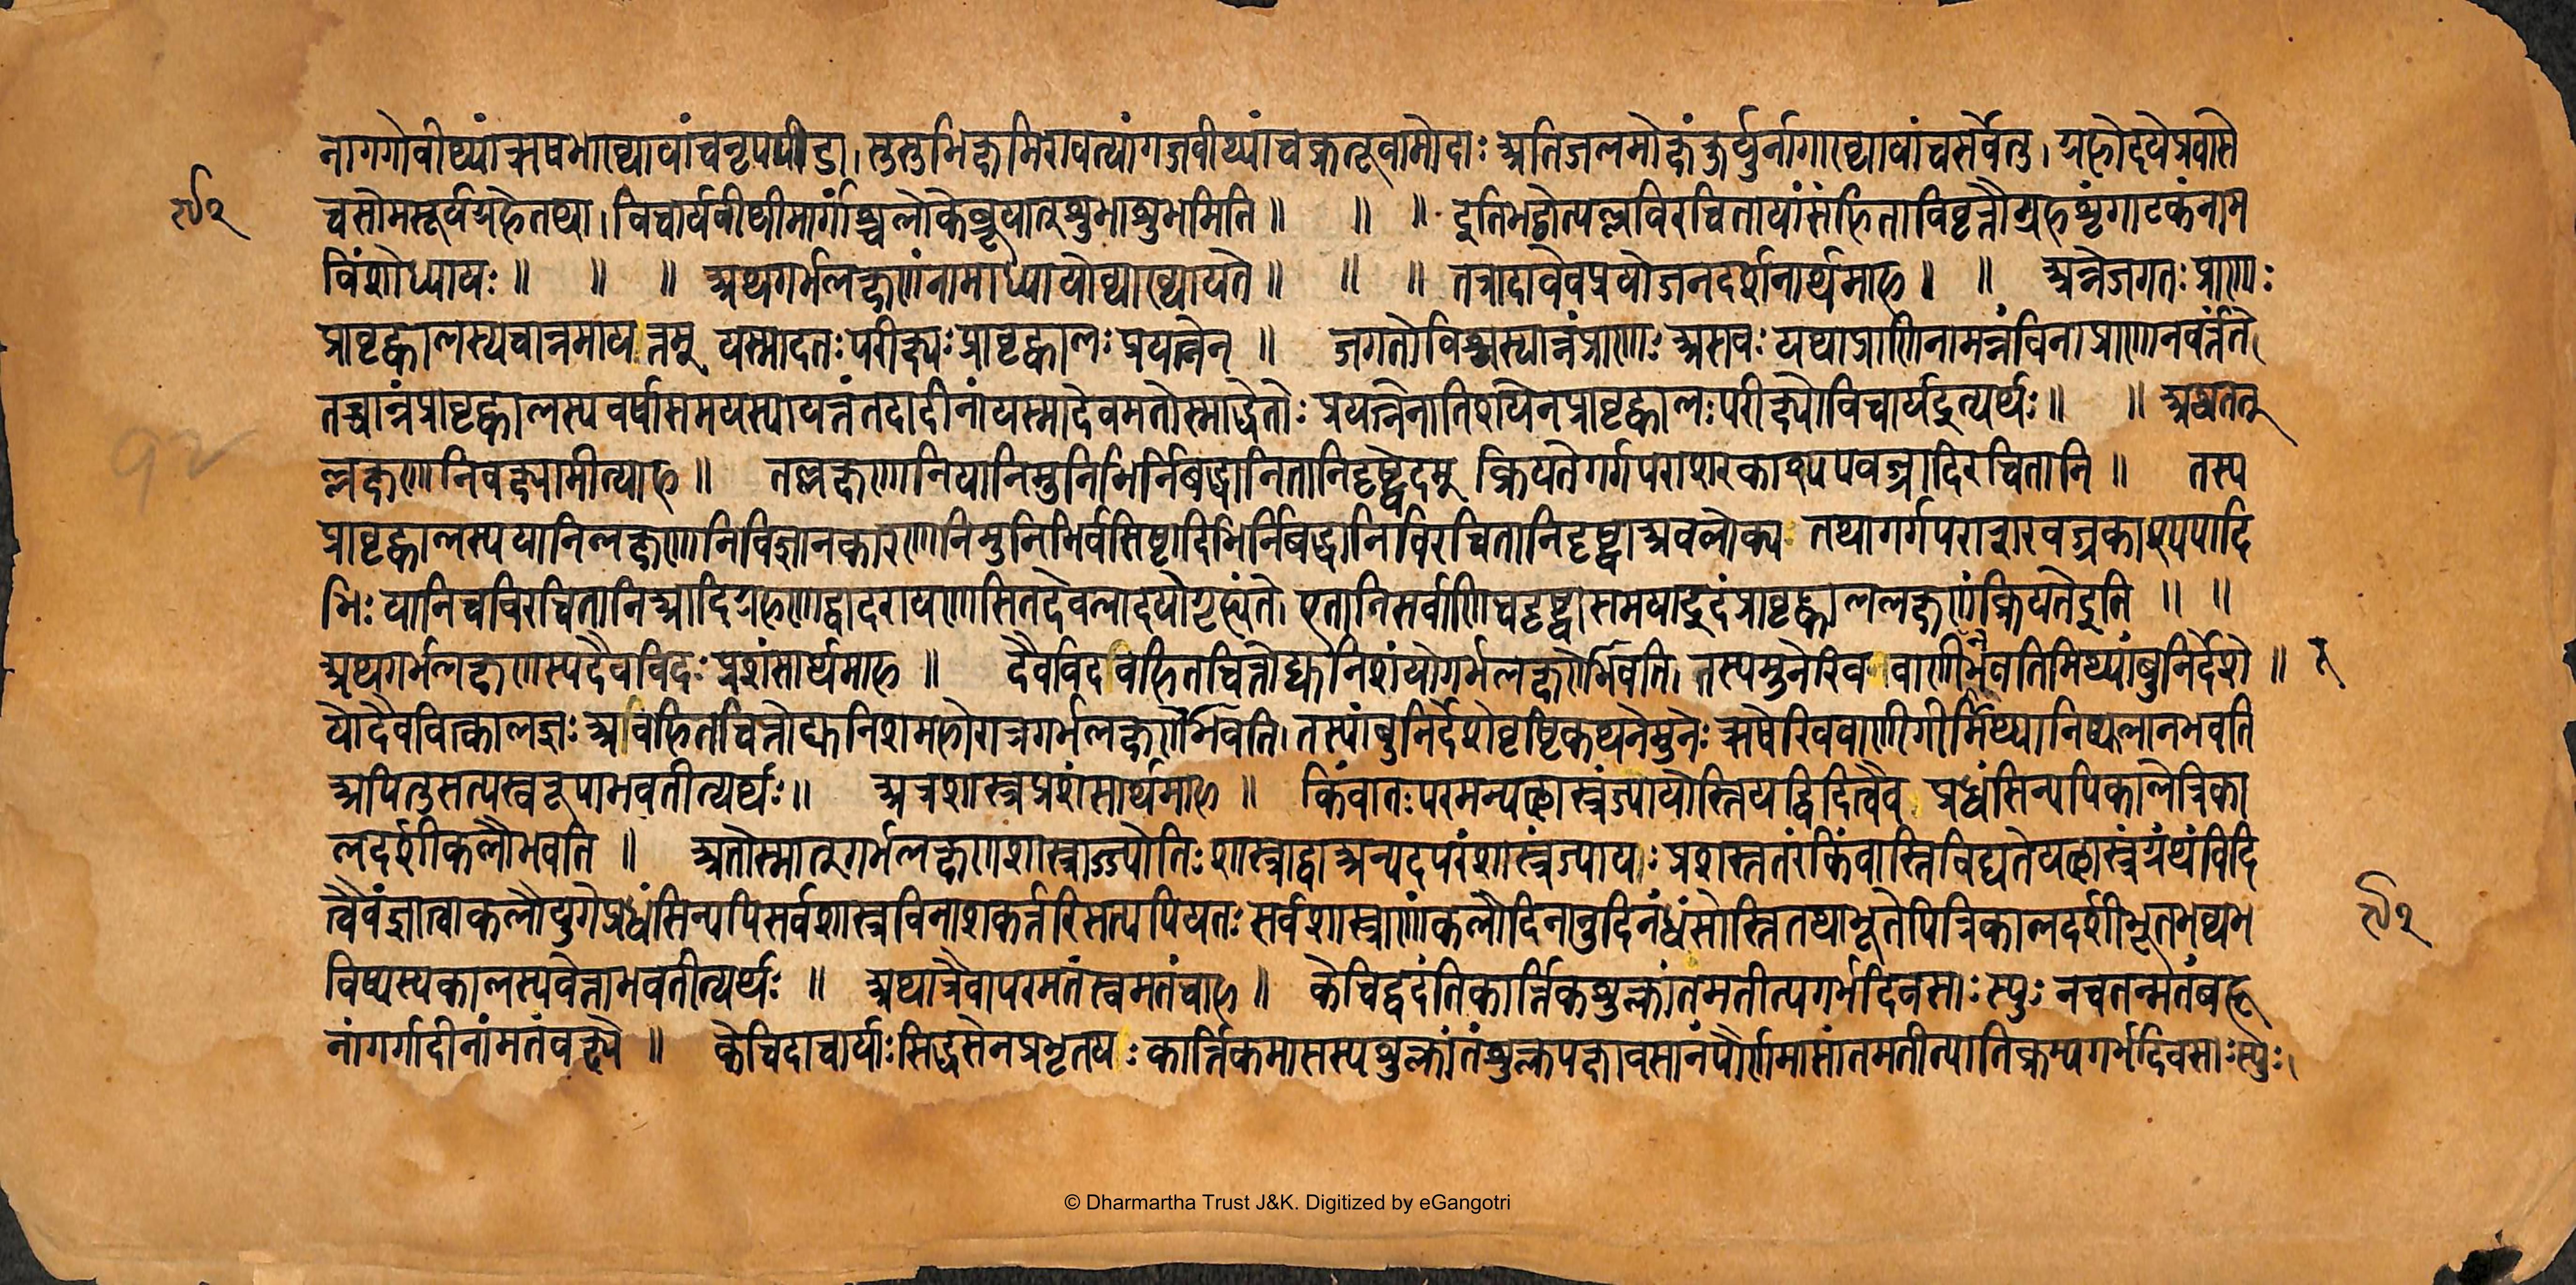 नागगोवीथ्यांऋषभाख्यायांचनृपपीडा। सुसुभिक्षमिरावत्यांगजवीथ्यांचक्रतूत्रामोदाः अतिजलमोक्षंकुर्युर्नागाख्यायांचसर्वेतु। ग्रहोदयेप्रवासे
चसोमसूर्यग्रहेतथा। विचार्यवीथीमार्गांश्चलोकेब्रूयात्शुभाशुभमिति॥ ॥ ॥ इतिभट्टोत्पलविरचितायांसंहिताविवृत्तौग्रहशृंगाटकंनाम
विंशोध्यायः॥ ॥ ॥ अथगर्भलक्षणंनामाध्यायोव्याख्यायते॥ ॥ ॥ तत्रादावेवप्रयोजनदर्शनार्थमाह। ॥ अन्नंजगतःप्राणः
प्रावृट्कालस्यचान्नमायत्तम् यस्मादतःपरीक्ष्यःप्रावृट्कालःप्रयत्नेन् ॥ जगतोविश्वस्यान्नंप्राणाः असवः यथाप्राणिनामन्नंविनाप्राणानवर्त्तंते
तच्चान्नंप्रावृट्कालस्यवर्षासमयस्यायत्तंतदादीनांयस्मादेवमतोस्माद्धेतोः प्रयत्नेनातिशयेनप्रावृट्कालःपरीक्ष्योविचार्यइत्यर्थः॥ ॥ अथतत्
लक्षणानिवक्ष्यामीत्याह॥ तल्लक्षणानियानिमुनिभिर्निबद्धानितानिदृष्ट्वेदम् क्रियतेगर्गपराशरकाश्यपवज्रादिरचितानि॥ तस्य
प्रावृट्कालस्ययानिलक्षणानिविज्ञानकारणानिमुनिभिर्वसिष्ठादिभिर्निबद्धानिविरचितानिदृष्ट्वाअवलोक्य तथागर्गपराशरवज्रकाश्यपादि
भिः यानिचविरचितानिआदिग्रहणाद्बादरायणासितदेवलादयोगृह्यंते। एतानिसर्वाणिचदृष्ट्वासमयाइदंप्रावृट्काललक्षणंक्रियतेइति॥ ॥
अथगर्भलक्षणस्यदैवविदःप्रशंसार्थमाह॥ दैवविदविहितचित्तोद्युनिशंयोगर्भलक्षणेभवति। तस्यमुनेरिववाणीनभवतिमिथ्यांबुनिर्देशे॥ १
योदैववित्कालज्ञः अविहितचित्तोद्युनिशमहोरात्रगर्भलक्षणेभवति। तस्यांबुनिर्देशेवृष्टिकथनेमुनेः ऋषेरिववाणीगीर्मिथ्यानिष्फलानभवति
अपितुसत्यस्वरूपाभवतीत्यर्थः॥ अत्रशास्त्रप्रशंसार्थमाह॥ किंवातःपरमन्यच्छास्त्रंज्यायोस्तियद्विदित्वैव प्रध्वंसिन्यपिकालेत्रिका
लदर्शीकलौभवति॥ अतोस्मात्गर्भलक्षणशास्त्राज्ज्योतिःशास्त्राद्वाअन्यदपरंशास्त्रंज्यायः प्रशस्ततरंकिंवास्तिविद्यतेयच्छास्त्रंग्रंथंविदि
त्वैवंज्ञात्वाकलौयुगेप्रध्वंसिन्यपिसर्वशास्त्रविनाशकर्त्तरिसत्यपियतः सर्वशास्त्राणांकलौदिनानुदिनंध्वंसोस्तितथाभूतेपित्रिकालदर्शीभूतभव्यभ
विष्यस्यकालस्यवेत्ताभवतीत्यर्थः॥ अथात्रैवापरमतंस्वमतंचाह॥ केचिद्वदंतिकार्त्तिकशुक्लांतमतीत्यगर्भदिवसाः स्युः नचतन्मतंबहू
नांगर्गादीनांमतंवक्ष्ये॥ केचिदाचार्याःसिद्धसेनप्रभृतयः कार्त्तिकमासस्यशुक्लांतंशुक्लपक्षावसानंपौर्णमासांतमतीत्यातिक्रम्यगर्भदिवसाःस्युः।
© Dharmartha Trust J&K. Digitized by eGangotri